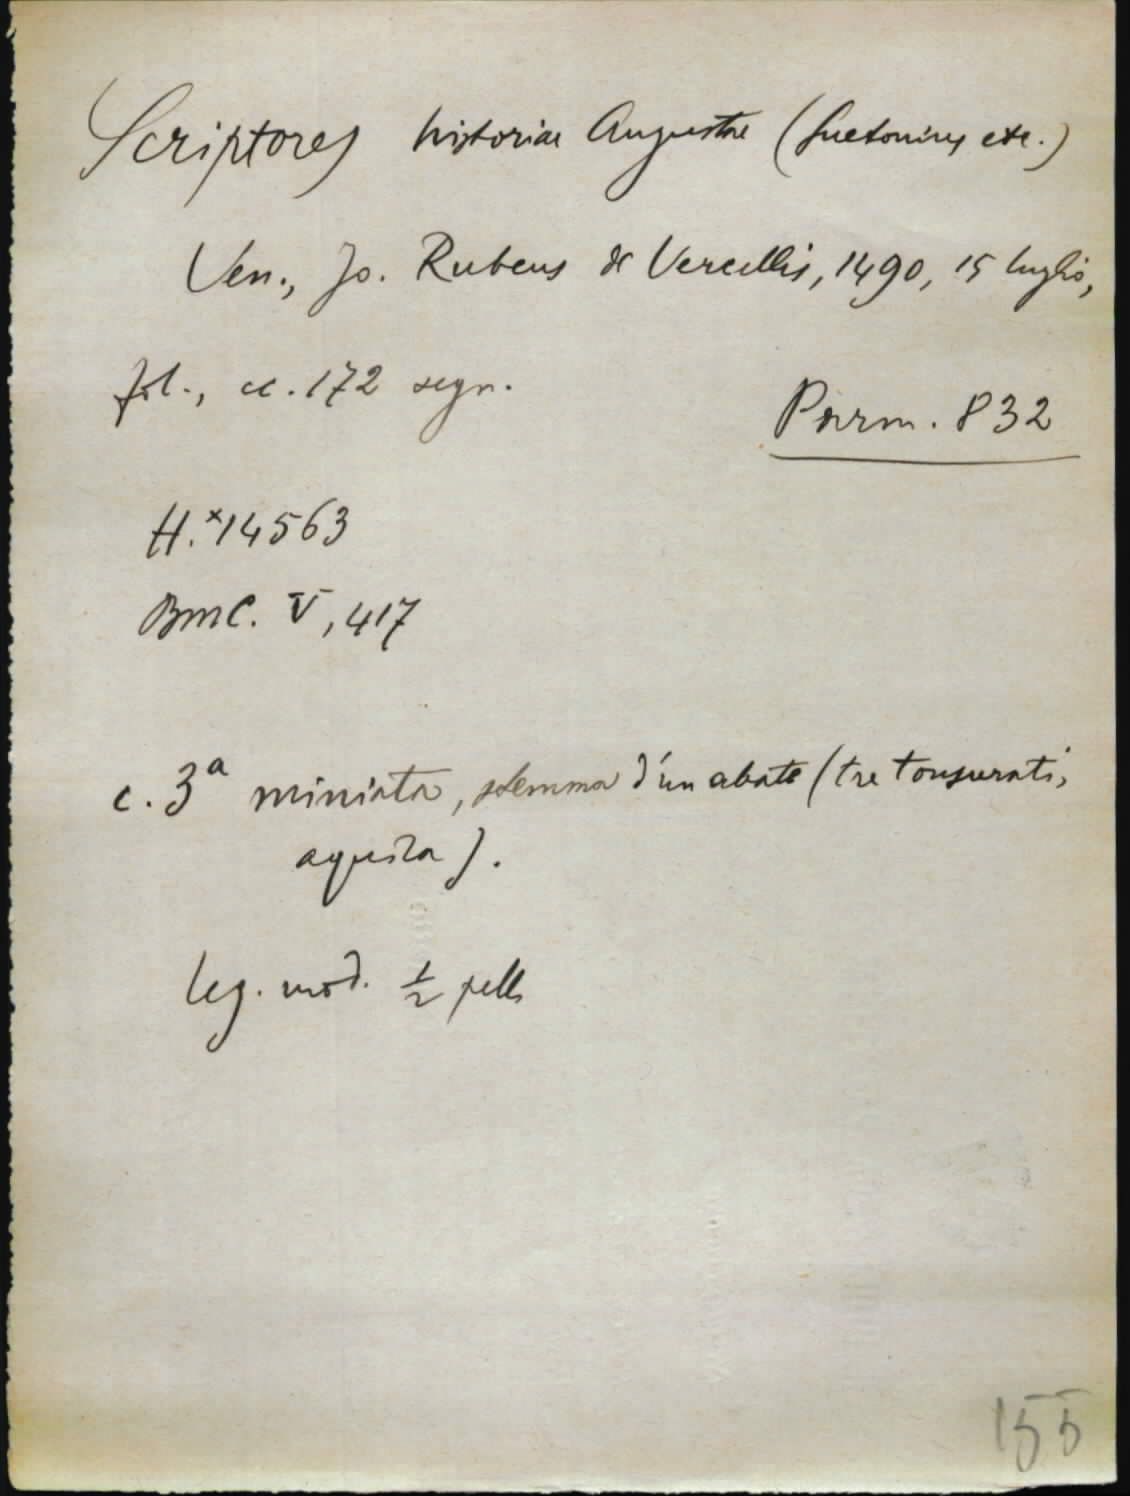 Scriptores historiae Augustae (Suetonius etc.)
Ven., Jo. Rubeus de Vercellis, 1490, 15 luglio,
fol., cc. 172 segn.
Parm. 832
H.*14563
BMC. V, 417
c. 3a miniata, stemma d'un abate (tre tonsurati,
aquila).
leg. mod. ½ pelle
155